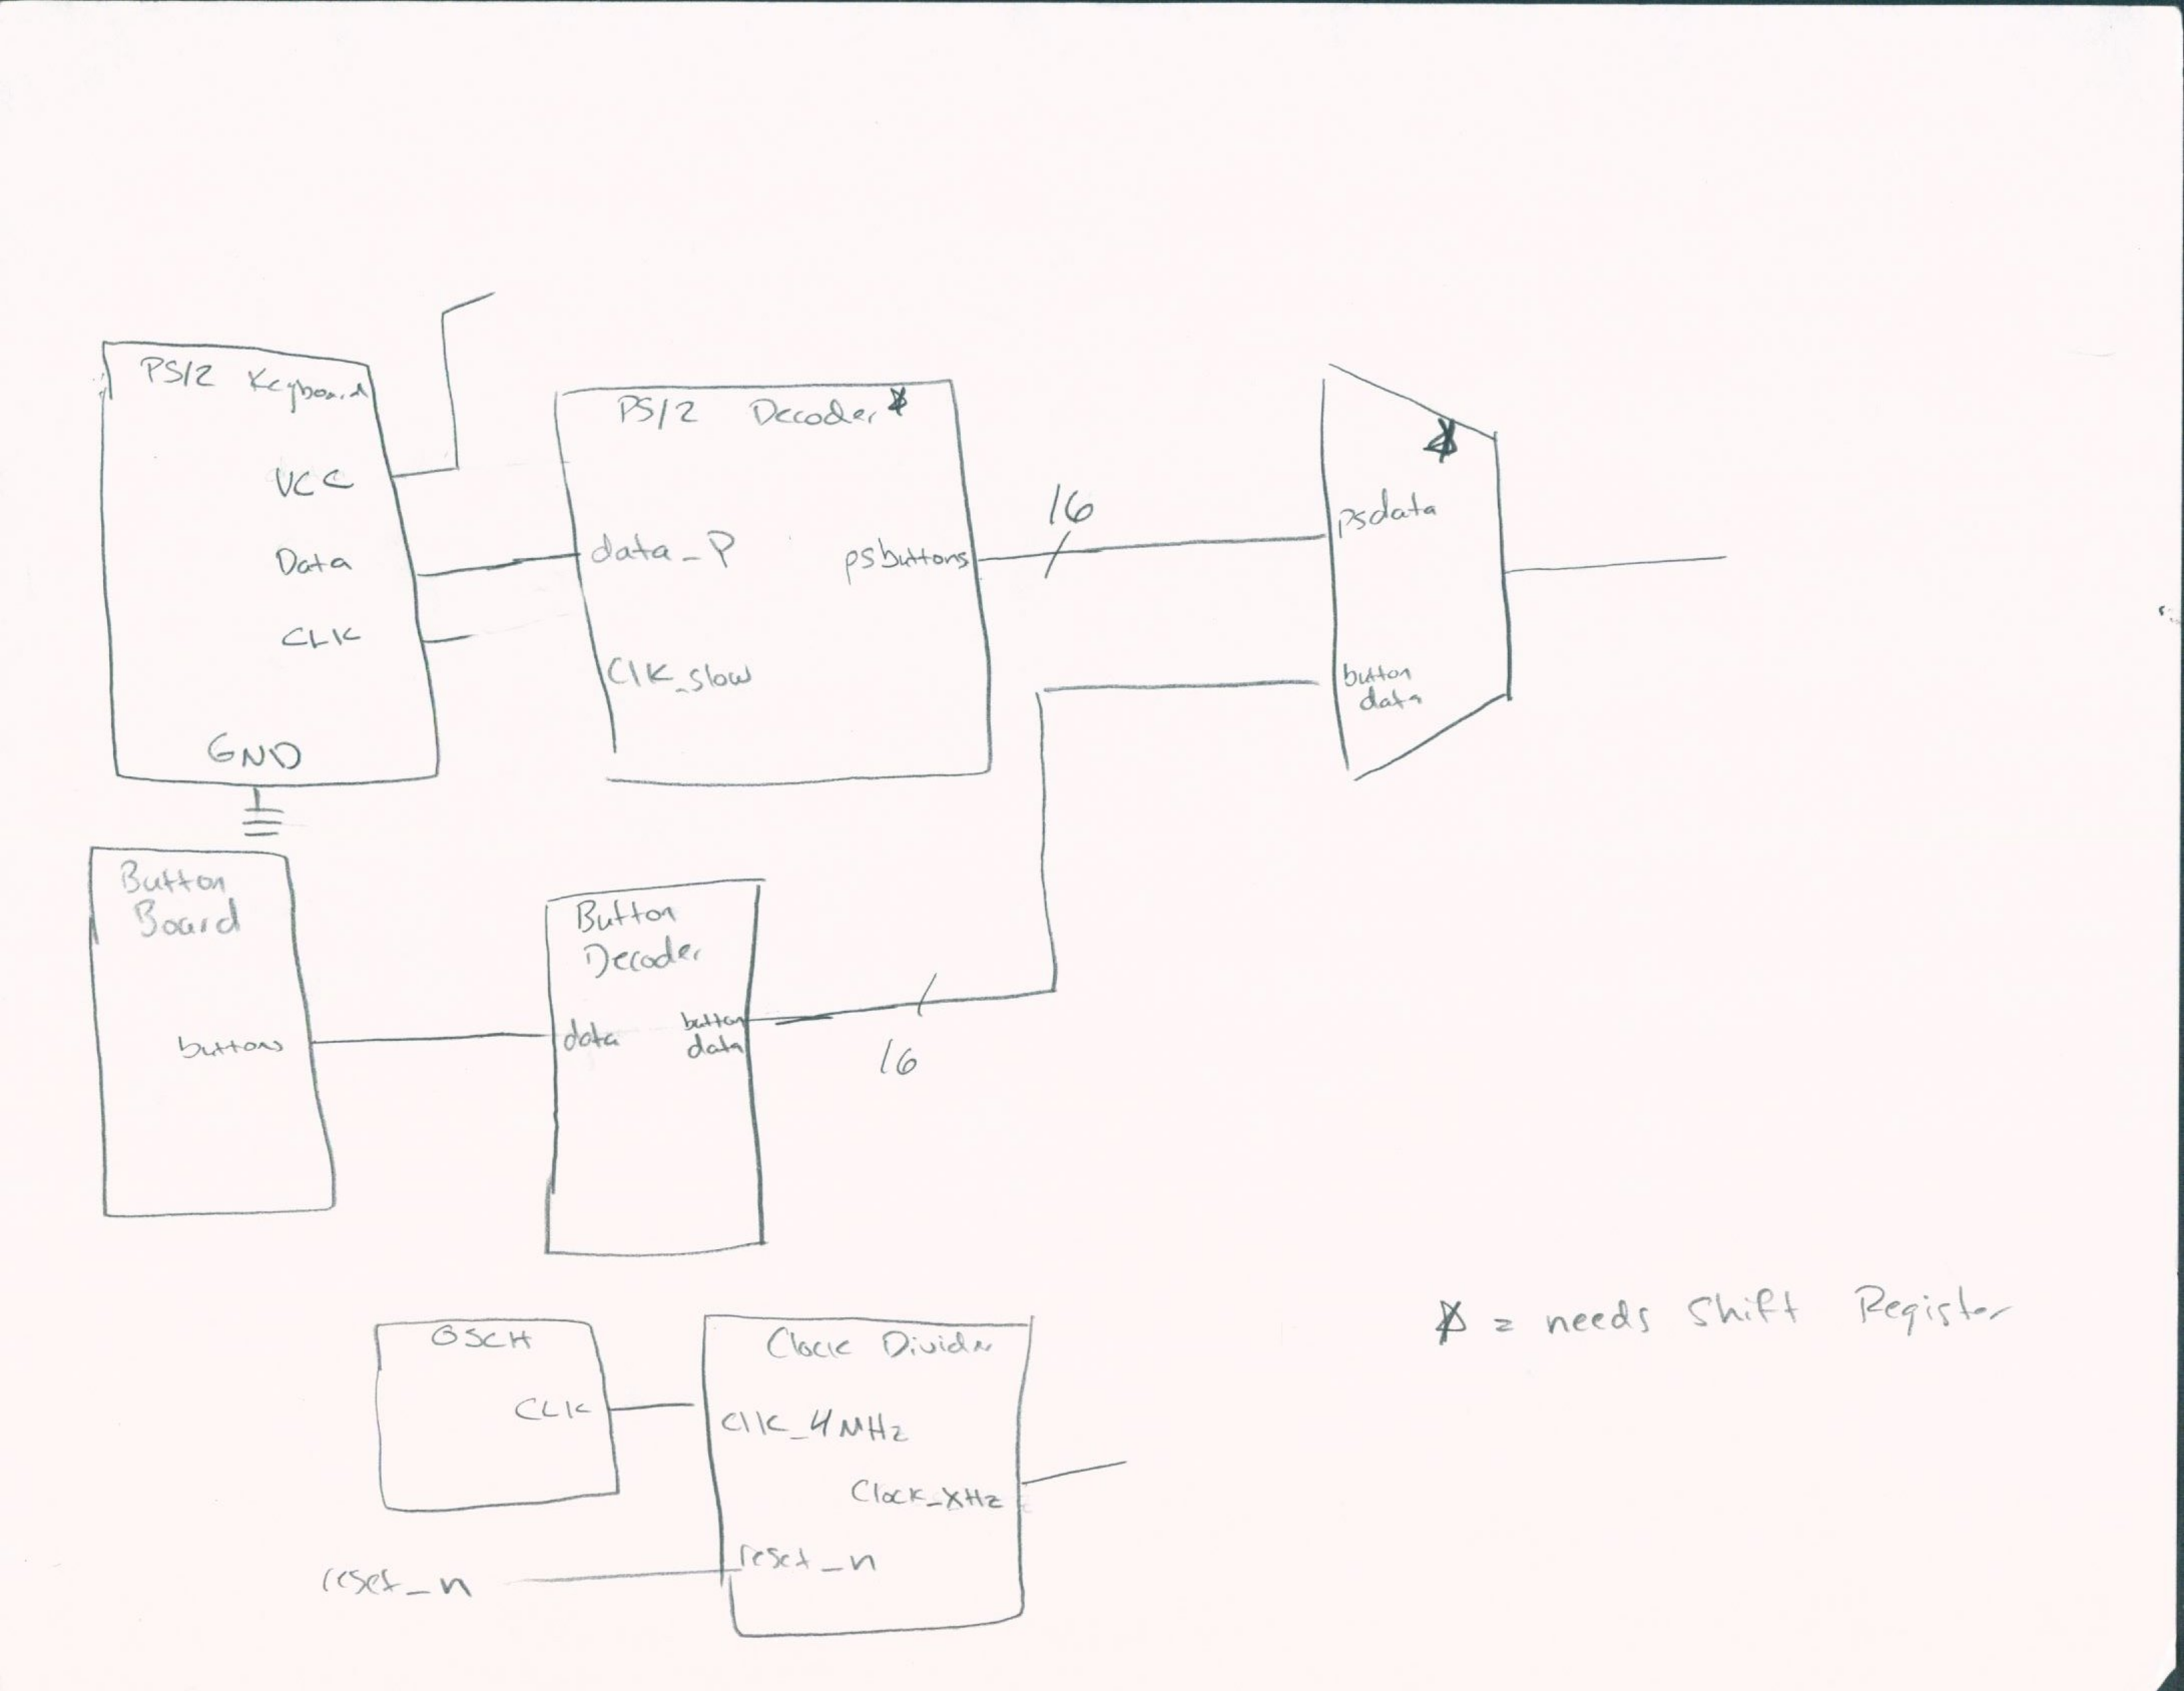 PS/2 Keyboard
VCC
Data
CLK
GND
PS/2 Decoder*
data_P
psbuttons
Clk_slow
16
*
psdata
button
data
Button
Board
buttons
Button
Decoder
data
button
data
16
OSCH
CLK
Clock Divider
Clk_4MHz
Clock_XHz
reset_n
reset_n
* = needs Shift Register